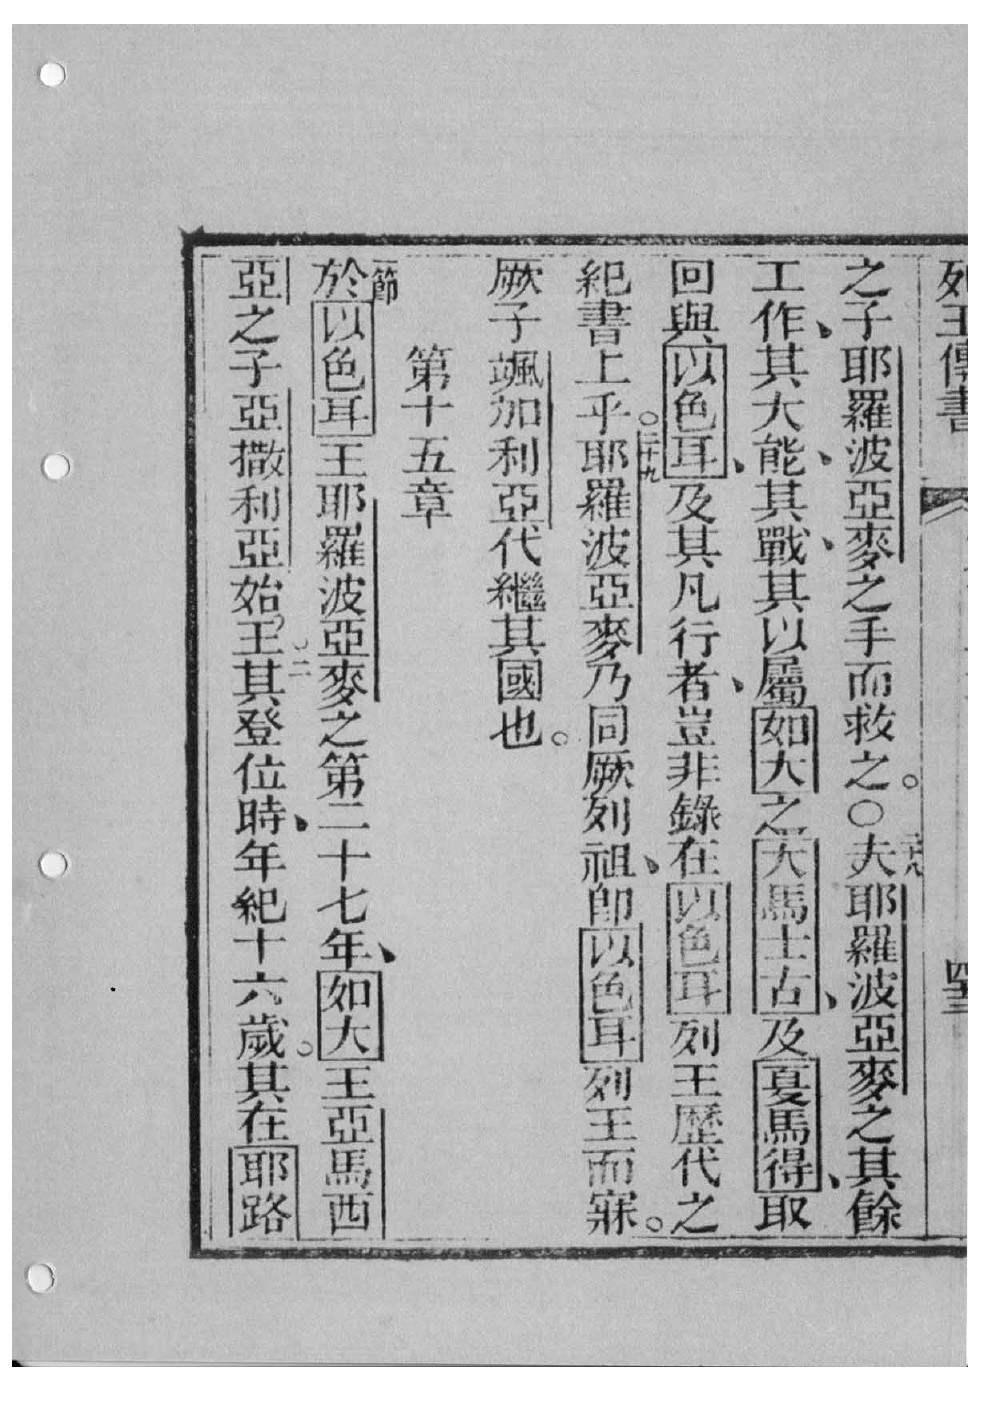 列王傳書 四十三
之子耶羅波亞麥之手而救之。○二十八夫耶羅波亞麥之其餘
工作、其大能、其戰、其以屬如大之大馬士古、及夏馬得、取
回與以色耳、及其凡行者、豈非錄在以色耳列王歷代之
紀書上乎。二十九耶羅波亞麥乃同厥列祖、即以色耳列王而寐。
厥子颯加利亞代繼其國也。
第十五章
一節於以色耳王耶羅波亞麥之第二十七年、如大王亞馬西
亞之子亞撒利亞始王、二其登位時、年紀十六歲。其在耶路